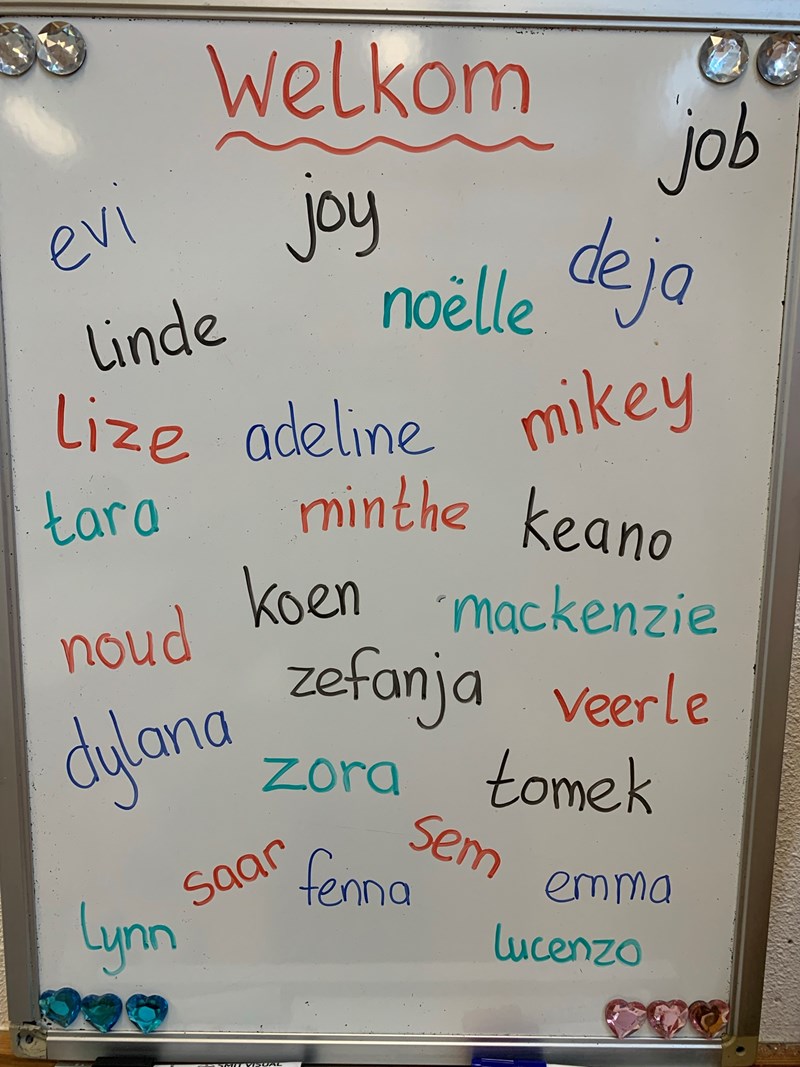 Welkom
job
evi
joy
deja
noëlle
linde
mikey
Lize
adeline
tara
minthe
keano
koen
mackenzie
noud
zefanja
veerle
dylana
zora
tomek
sem
saar
fenna
emma
Lynn
lucenzo